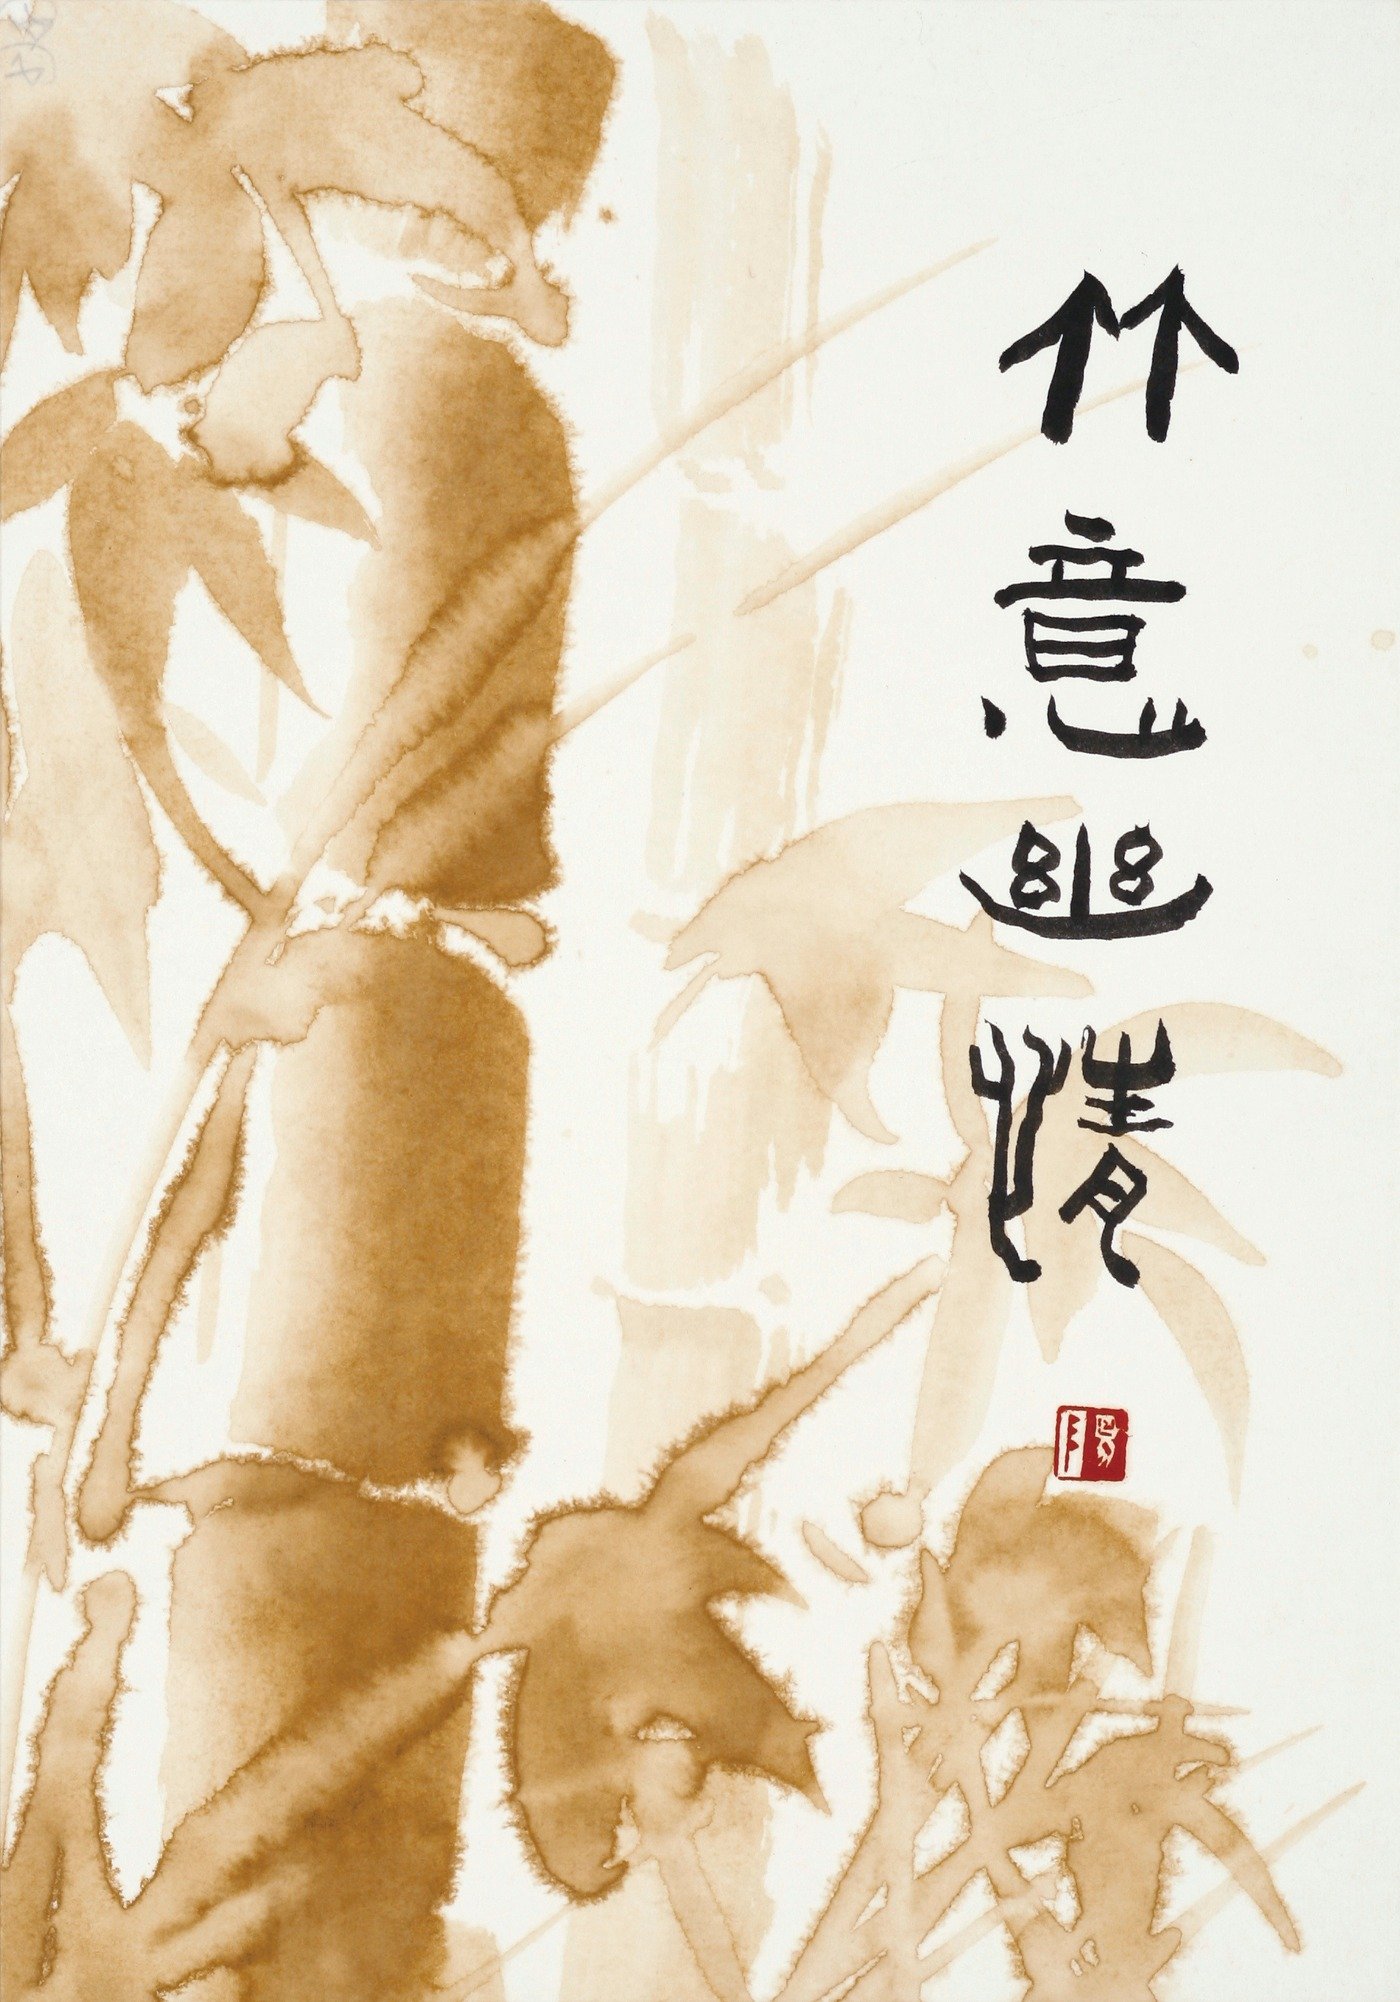 竹意幽情